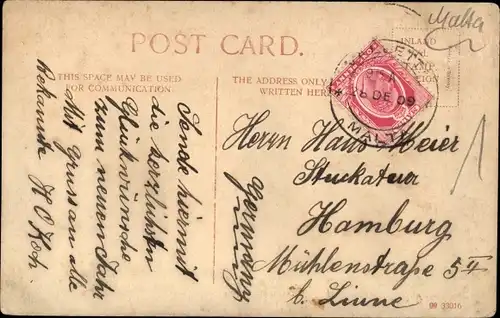 Malta
POST CARD.
INLAND
THIS SPACE MAY BE USED
FOR COMMUNICATION
THE ADDRESS ONLY
WRITTEN HERE
VALLETTA
DE 09
MALTA
Sende hiermit
die herzlichsten
Glückwünsche
zum neuen Jahr
Mit Gruss an alle
Bekannte H O Koch
Herrn Hans Meier
Stuckateur
Hamburg
Mühlenstrasse 5 II
b. Linne
Germany
09 33016